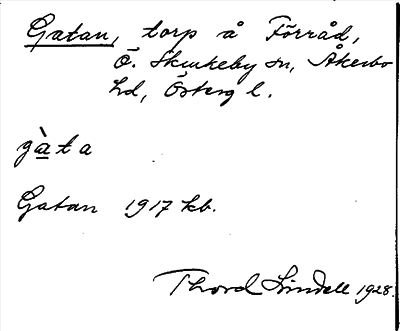 Gatan, torp å Förråd,
Ö. Skrukeby sn, Åkerbo
hd, Österg l.
gàta
Gatan 1917 kb.
Thord Lindell 1928.